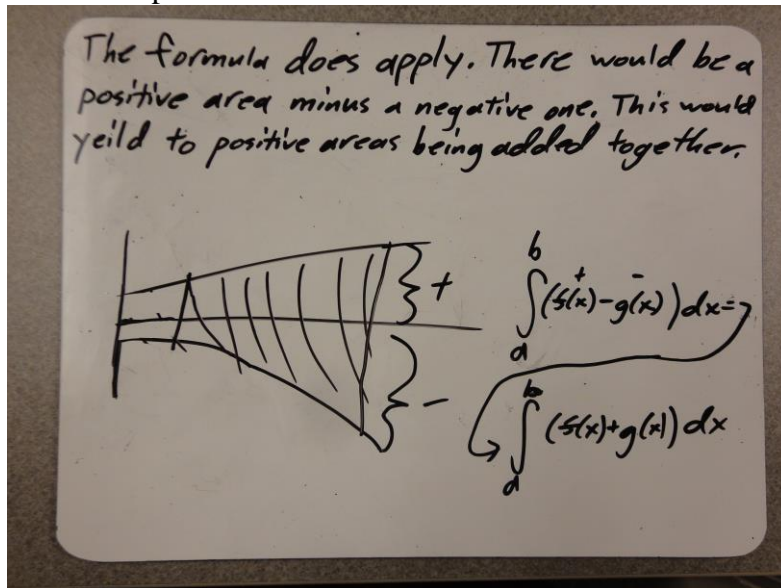 The formula does apply. There would be a
positive area minus a negative one. This would
yeild to positive areas being added together.
+
-
b
∫(f(x)-g(x))dx=
+ -
a
b
∫(f(x)+g(x))dx
a